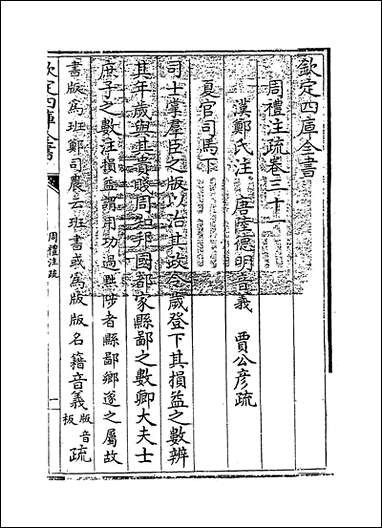 欽定四庫全書
周禮注疏卷三十一
漢鄭氏注 唐陸德明音義 賈公彦疏
夏官司馬下
司士掌羣臣之版以治其政令歲登下其損益之數辨
其年歲與其貴賤周知邦國都家縣鄙之數卿大夫士
庶子之數注損益謂用功過黜陟者縣鄙鄉遂之屬故
書版為班鄭司農云班書或為版版名籍音義版音板疏
欽定四庫全書
周禮注疏
一